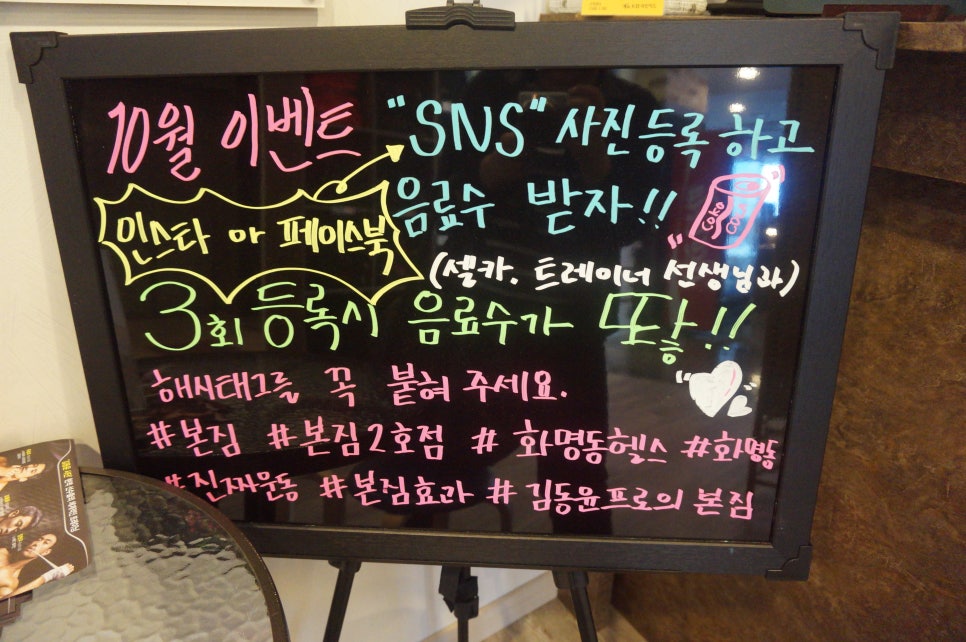 10월 이벤트 "SNS" 사진등록 하고
음료수 받자!!
coko
인스타 마 페이스북
(셀카. 트레이너 선생님과)
3회 등록시 음료수가 똻!!
해시태그를 꼭 붙혀 주세요.
#본짐 #본짐2호점 # 화명동헬스 #화명동
#진짜운동 #본짐효과 # 김동윤프로의 본짐